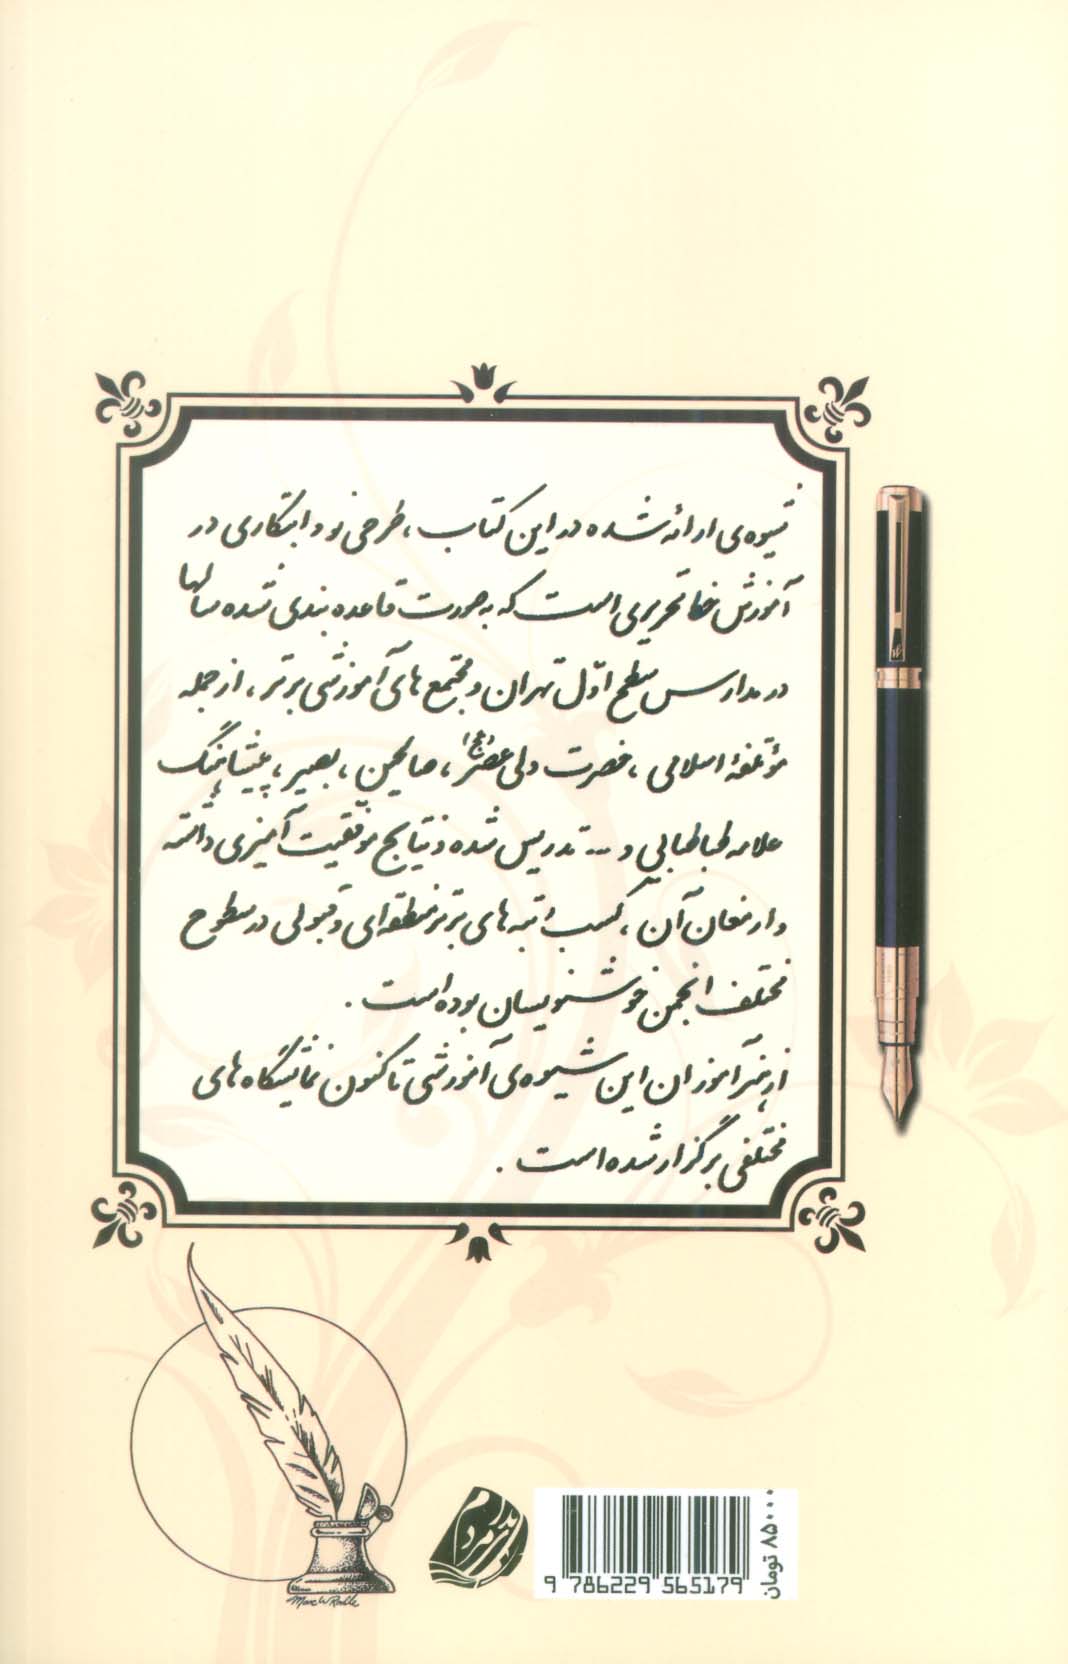 شیوه‌ی ارائه شده در این کتاب ، طرحی نو و ابتکاری در
آموزش خط تحریری است که به صورت قاعده بندی شده سالها
در مدارس سطح اوّل تهران و مجتمع های آموزشی برتر ، از جمله
مؤتلفهٔ اسلامی ، حضرت ولی عصر(عج) ، صالحین ، بصیر ، پیشاهنگ
علامه طباطبایی و ... تدریس شده و نتایج موفقیت آمیزی داشته
و ارمغان آن ، کسب رتبه های برتر منطقه‌ای و قبولی در سطوح
مختلف انجمن خوشنویسان بوده است .
از هنرآموزان این شیوه‌ی آموزشی تا کنون نمایشگاه های
مختلفی برگزار شده است .
9 786229 565179
۸۵۰۰۰ تومان